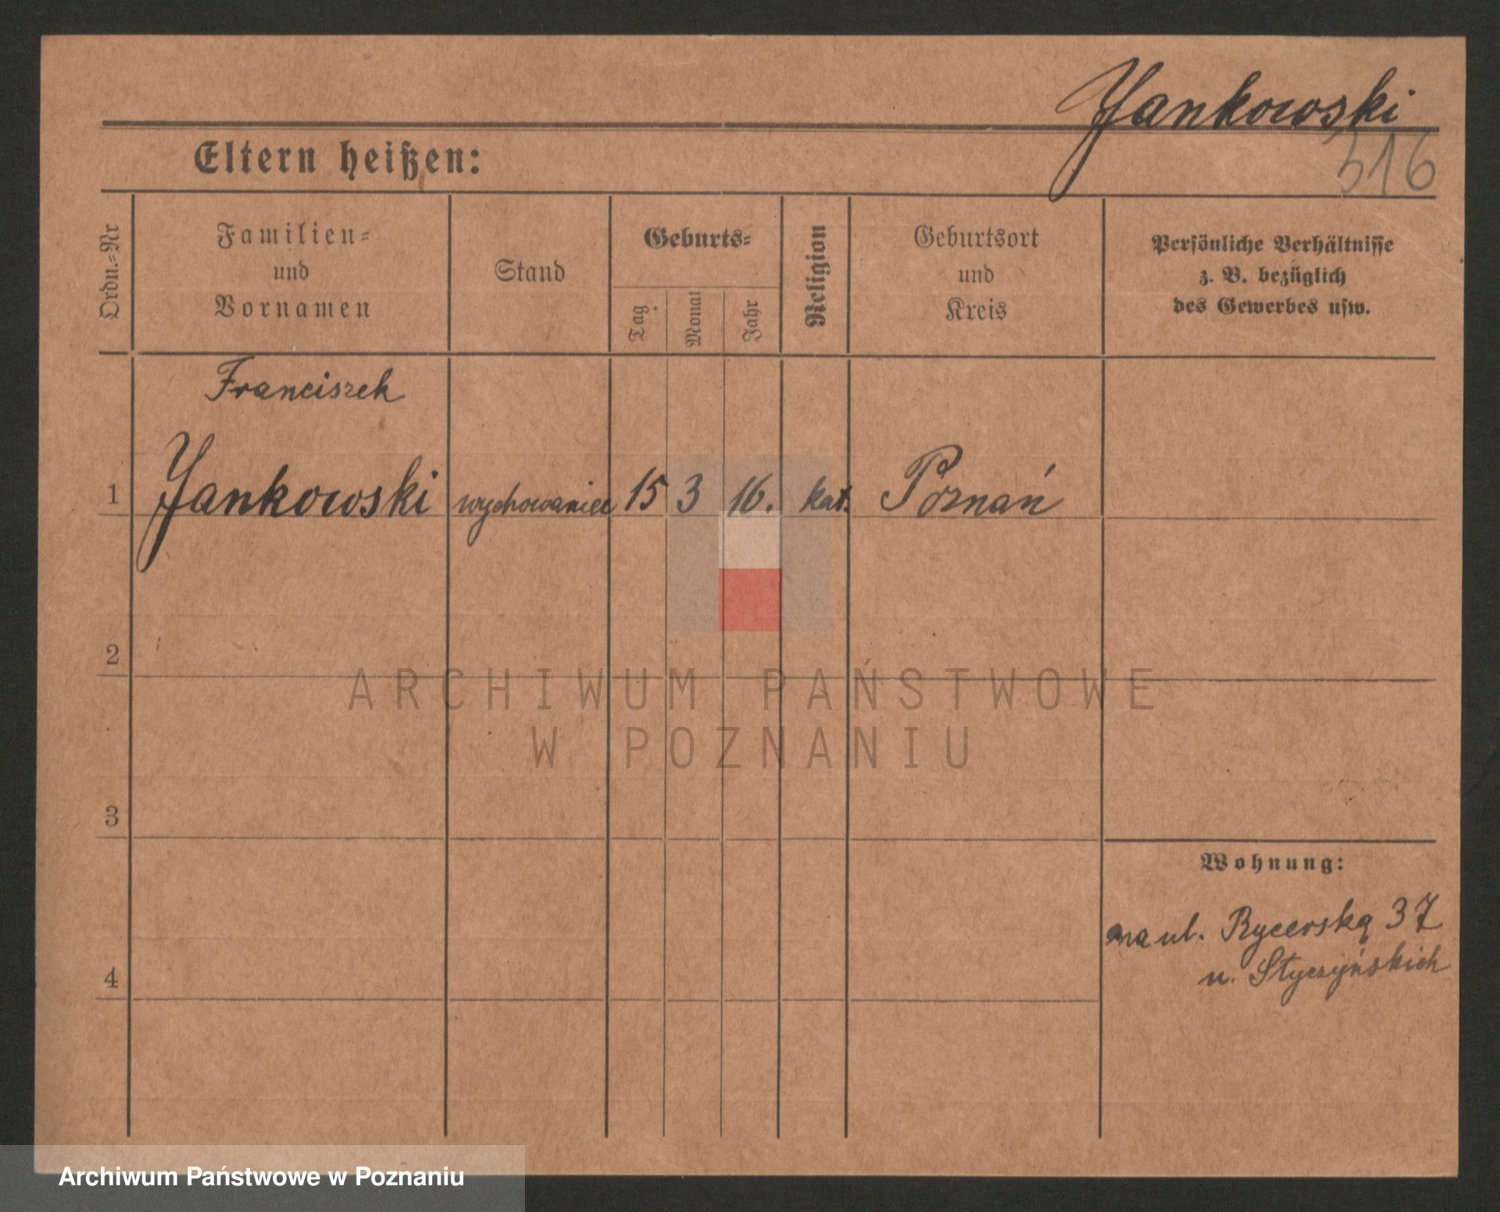 Jankowski
Eltern heißen:
316
Ordn.-Nr
Familien-
und
Vornamen
Stand
Geburts-
Tag
Monat
Jahr
Religion
Geburtsort
und
Kreis
Persönliche Verhältnisse
z. B. bezüglich
des Gewerbes usw.
Franciszek
1 Jankowski wychowaniec 15 3 16. kat. Poznań
2
ARCHIWUM PAŃSTWOWE
W POZNANIU
3
Wohnung:
na ul. Rycerską 37
4
u. Styczyńskich
Archiwum Państwowe w Poznaniu